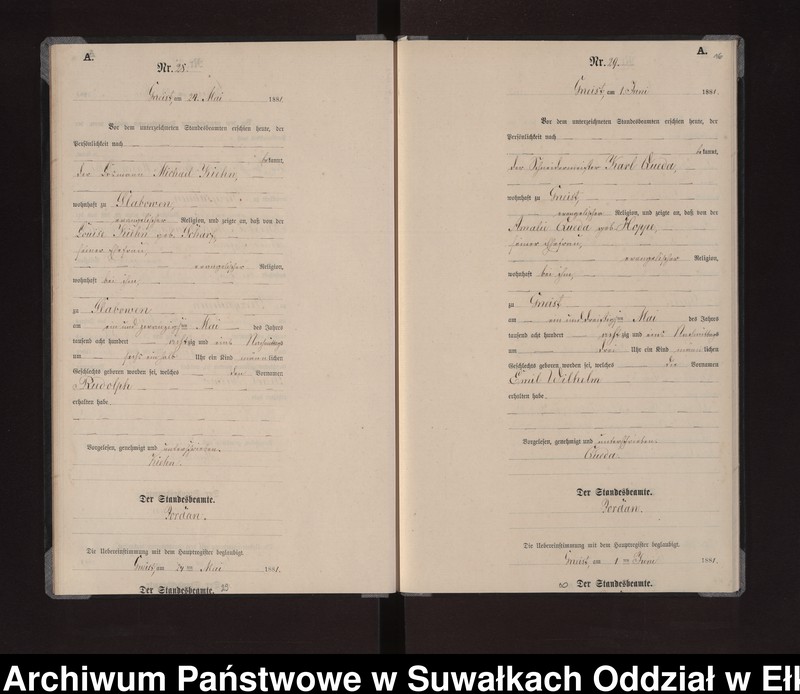 A.
Nr. 28.
am 24. Mai 1881.
Vor dem unterzeichneten Standesbeamten erschien heute, der
Persönlichkeit nach
bekannt,
der Michael
wohnhaft zu
evangelischer Religion, und zeigte an, daß von der
Louise geb.
seiner Ehefrau,
evangelischer Religion,
wohnhaft bei ihm,
zu
am ein und zwanzigsten Mai des Jahres
tausend acht hundert achtzig und eins Nachmittags
um Uhr ein Kind männlichen
Geschlechts geboren worden sei, welches den Vornamen
Rudolph
erhalten habe.
Vorgelesen, genehmigt und unterschrieben.
Der Standesbeamte.
Jordan.
Die Uebereinstimmung mit dem Hauptregister beglaubigt.
am 24 ten Mai 1881.
Der Standesbeamte.
A.
Nr. 29.
am 1. Juni 1881.
Vor dem unterzeichneten Standesbeamten erschien heute, der
Persönlichkeit nach
bekannt,
der Schneidermeister Karl Queda,
wohnhaft zu
evangelischer Religion, und zeigte an, daß von der
Amalie Queda geb. Hoppe,
seiner Ehefrau,
evangelischer Religion,
wohnhaft bei ihm,
zu
am ein und dreißigsten Mai des Jahres
tausend acht hundert achtzig und eins Nachmittags
um drei Uhr ein Kind männlichen
Geschlechts geboren worden sei, welches die Vornamen
Emil Wilhelm
erhalten habe.
Vorgelesen, genehmigt und unterschrieben.
Queda.
Der Standesbeamte.
Jordan.
Die Uebereinstimmung mit dem Hauptregister beglaubigt.
am 1 ten Juni 1881.
Der Standesbeamte.
Archiwum Państwowe w Suwałkach Oddział w Ełk